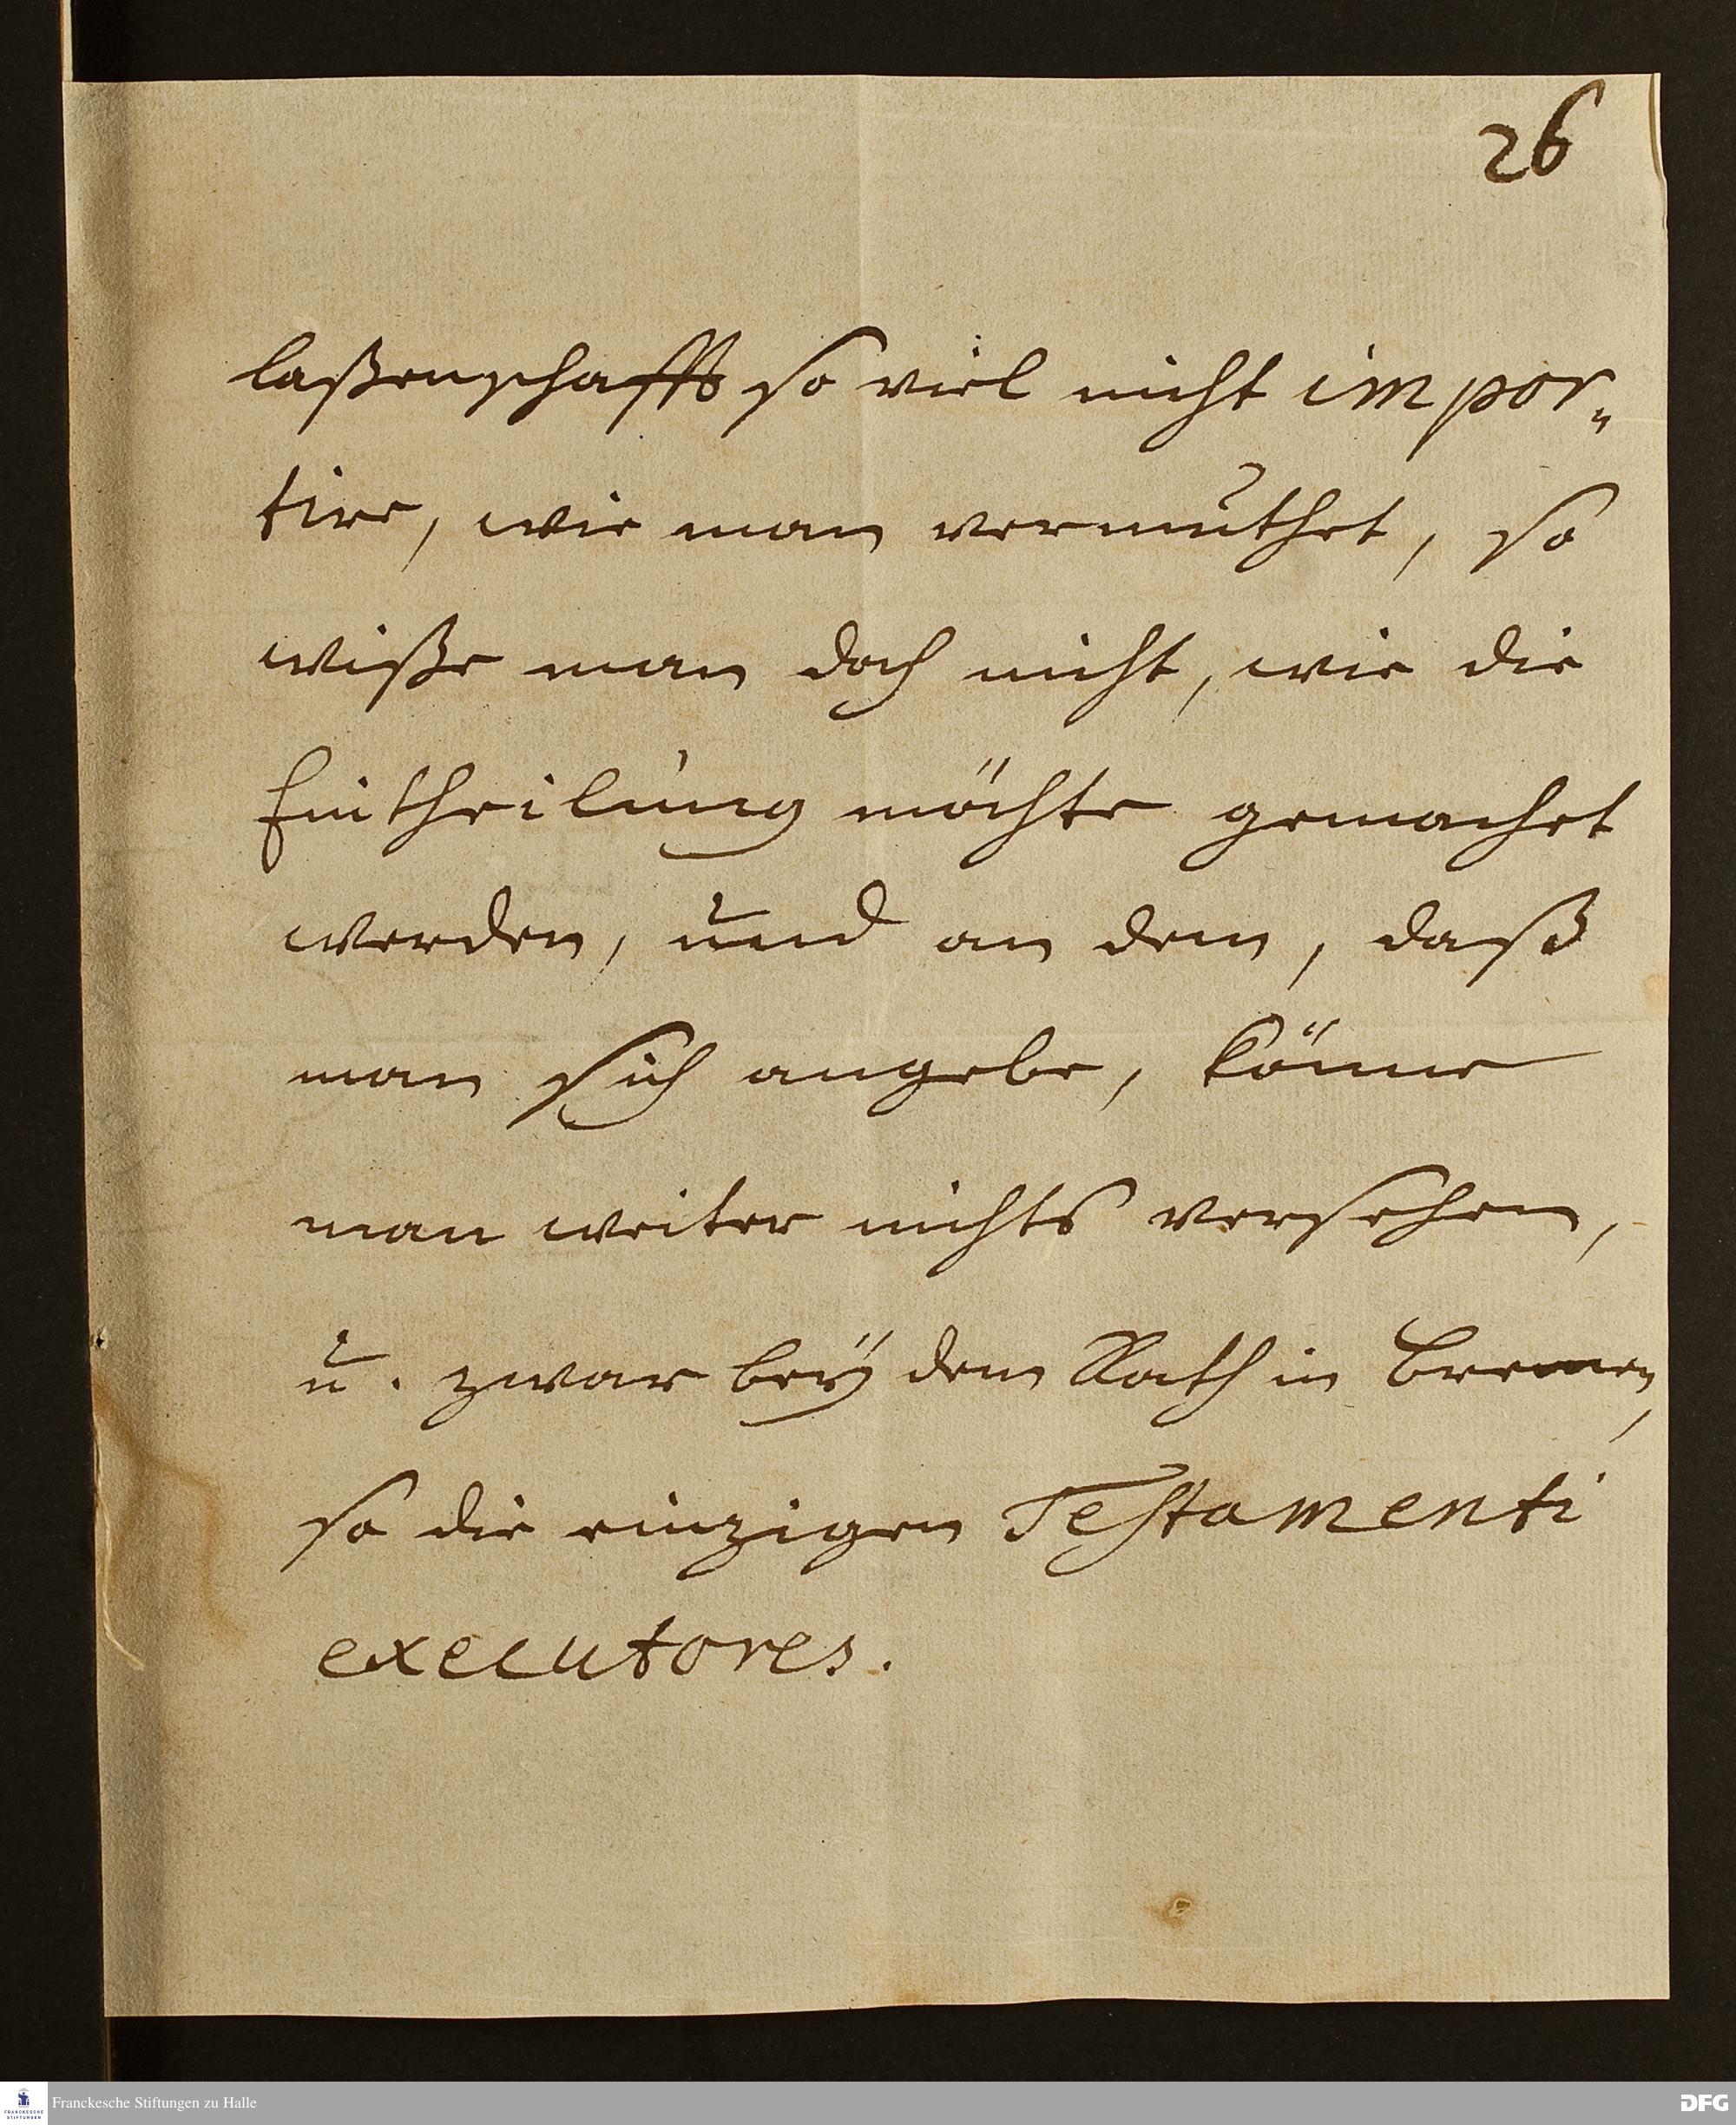 26
laßenschafft so viel nicht impor„
tire, wie man vermuthet, so
wiße man doch nicht, wie die
Eintheilung möchte gemachet
werden, und an dem, daß
man sich angebe, könne
man weiter nichts versehen,
u. zwar beÿ dem Rath in Bremen,
so die einzigen Testamenti
executores.
FRANCKESCHE
STIFTUNGEN
Franckesche Stiftungen zu Halle
DFG